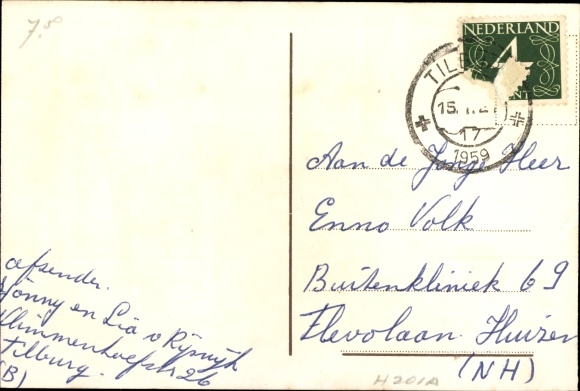 7.50
NEDERLAND
4
TILB
15.1.2
17
1959
Aan de Jonge Heer
Enno Volk
Buitenkliniek 69
Flevolaan. Huizen
(NH)
afsender.
Jonny en Lia v Rijswijk
Tilburg.
(B)
H 201A